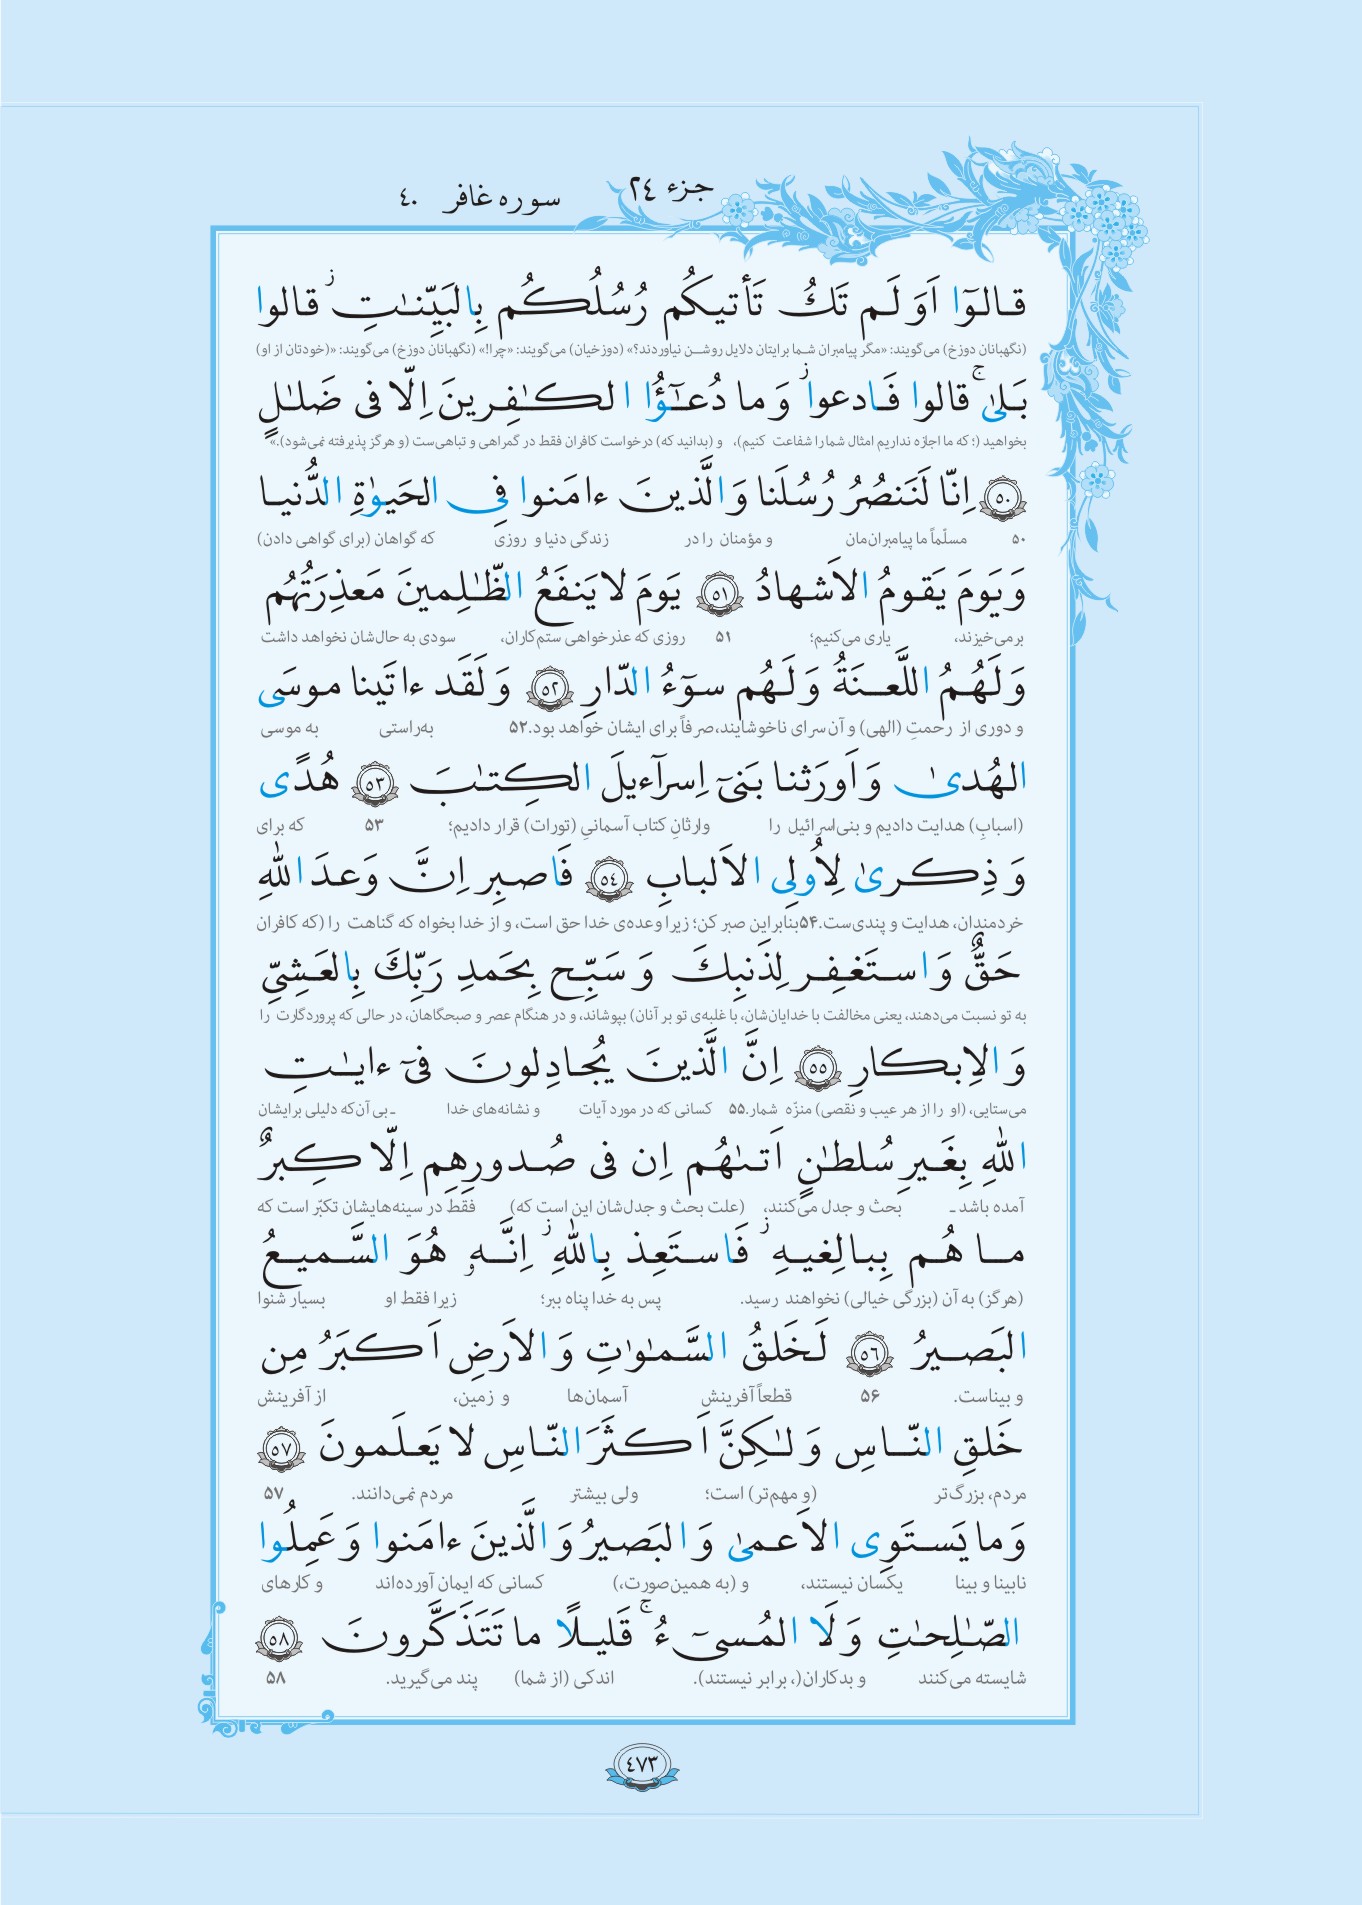 جزء ٢٤
سوره غافر ٤٠
قالوٓا اَوَ لَم تَكُ تَأتيكُم رُسُلُكُم بِالبَيِّنـٰتِ ۖ قالوا
(نگهبانان دوزخ) می‌گویند: «مگر پیامبران شما برایتان دلایل روشن نیاوردند؟» (دوزخیان) می‌گویند: «چرا!» (نگهبانان دوزخ) می‌گویند: «(خودتان از او)
بَلىٰ ۚ قالوا فَادعوا ۗ وَ ما دُعـٰٓؤُا الكـٰفِرينَ اِلّا فى ضَلـٰلٍ
بخواهید (؛ که ما اجازه نداریم امثال شما را شفاعت کنیم)، و (بدانید که) درخواست کافران فقط در گمراهی و تباهی‌ست (و هرگز پذیرفته نمی‌شود).»
٥٠ اِنّا لَنَنصُرُ رُسُلَنا وَ الَّذينَ ءامَنوا فِى الحَيوٰةِ الدُّنيا
۵۰ مسلّماً ما پیامبران‌مان و مؤمنان را در زندگی دنیا و روزی که گواهان (برای گواهی دادن)
وَ يَومَ يَقومُ الاَشهادُ ٥١ يَومَ لا يَنفَعُ الظّـٰلِمينَ مَعذِرَتُهُم
برمی‌خیزند، یاری می‌کنیم؛ ۵۱ روزی که عذرخواهی ستم‌کاران، سودی به حال‌شان نخواهد داشت
وَ لَهُمُ اللَّعنَةُ وَ لَهُم سوٓءُ الدّارِ ٥٢ وَ لَقَد ءاتَينا موسَى
و دوری از رحمتِ (الهی) و آن سرای ناخوشایند، صرفاً برای ایشان خواهد بود. ۵۲ به‌راستی به موسی
الهُدىٰ وَ اَورَثنا بَنىٓ اِسرآءيلَ الكِتـٰبَ ٥٣ هُدًى
(اسبابِ) هدایت دادیم و بنی‌اسرائیل را وارثانِ کتاب آسمانیِ (تورات) قرار دادیم؛ ۵۳ که برای
وَ ذِكرىٰ لِاُولِى الاَلبابِ ٥٤ فَاصبِر اِنَّ وَعدَ اللّٰهِ
خردمندان، هدایت و پندی‌ست. ۵۴ بنابراین صبر کن؛ زیرا وعده‌ی خدا حق است، و از خدا بخواه که گناهت را (که کافران
حَقٌّ وَ استَغفِر لِذَنبِكَ وَ سَبِّح بِحَمدِ رَبِّكَ بِالعَشِىِّ
به تو نسبت می‌دهند، یعنی مخالفت با خدایان‌شان، با غلبه‌ی تو بر آنان) بپوشاند، و در هنگام عصر و صبحگاهان، در حالی که پروردگارت را
وَ الاِبكارِ ٥٥ اِنَّ الَّذينَ يُجادِلونَ فىٓ ءايـٰتِ
می‌ستایی، (او را از هر عیب و نقصی) منزّه شمار. ۵۵ کسانی که در مورد آیات و نشانه‌های خدا ـ بی آن‌که دلیلی برایشان
اللّٰهِ بِغَيرِ سُلطـٰنٍ اَتىٰهُم اِن فى صُدورِهِم اِلّا كِبرٌ
آمده باشد ـ بحث و جدل می‌کنند، (علت بحث و جدل‌شان این است که) فقط در سینه‌هایشان تکبّر است که
ما هُم بِبالِغيهِ ۚ فَاستَعِذ بِاللّٰهِ ۖ اِنَّهو هُوَ السَّميعُ
(هرگز) به آن (بزرگی خیالی) نخواهند رسید. پس به خدا پناه ببر؛ زیرا فقط او بسیار شنوا
البَصيرُ ٥٦ لَخَلقُ السَّمـٰوٰتِ وَ الاَرضِ اَكبَرُ مِن
و بیناست. ۵۶ قطعاً آفرینش آسمان‌ها و زمین، از آفرینش
خَلقِ النّاسِ وَ لـٰكِنَّ اَكثَرَ النّاسِ لا يَعلَمونَ ٥٧
مردم، بزرگ‌تر (و مهم‌تر) است؛ ولی بیشتر مردم نمی‌دانند. ۵۷
وَ ما يَستَوِى الاَعمىٰ وَ البَصيرُ وَ الَّذينَ ءامَنوا وَ عَمِلُوا
نابینا و بینا یکسان نیستند، و (به همین‌صورت،) کسانی که ایمان آورده‌اند و کارهای
الصّـٰلِحـٰتِ وَ لَا المُسىٓءُ ۚ قَليلًا ما تَتَذَكَّرونَ ٥٨
شایسته می‌کنند و بدکاران(، برابر نیستند). اندکی (از شما) پند می‌گیرید. ۵۸
٤٧٣